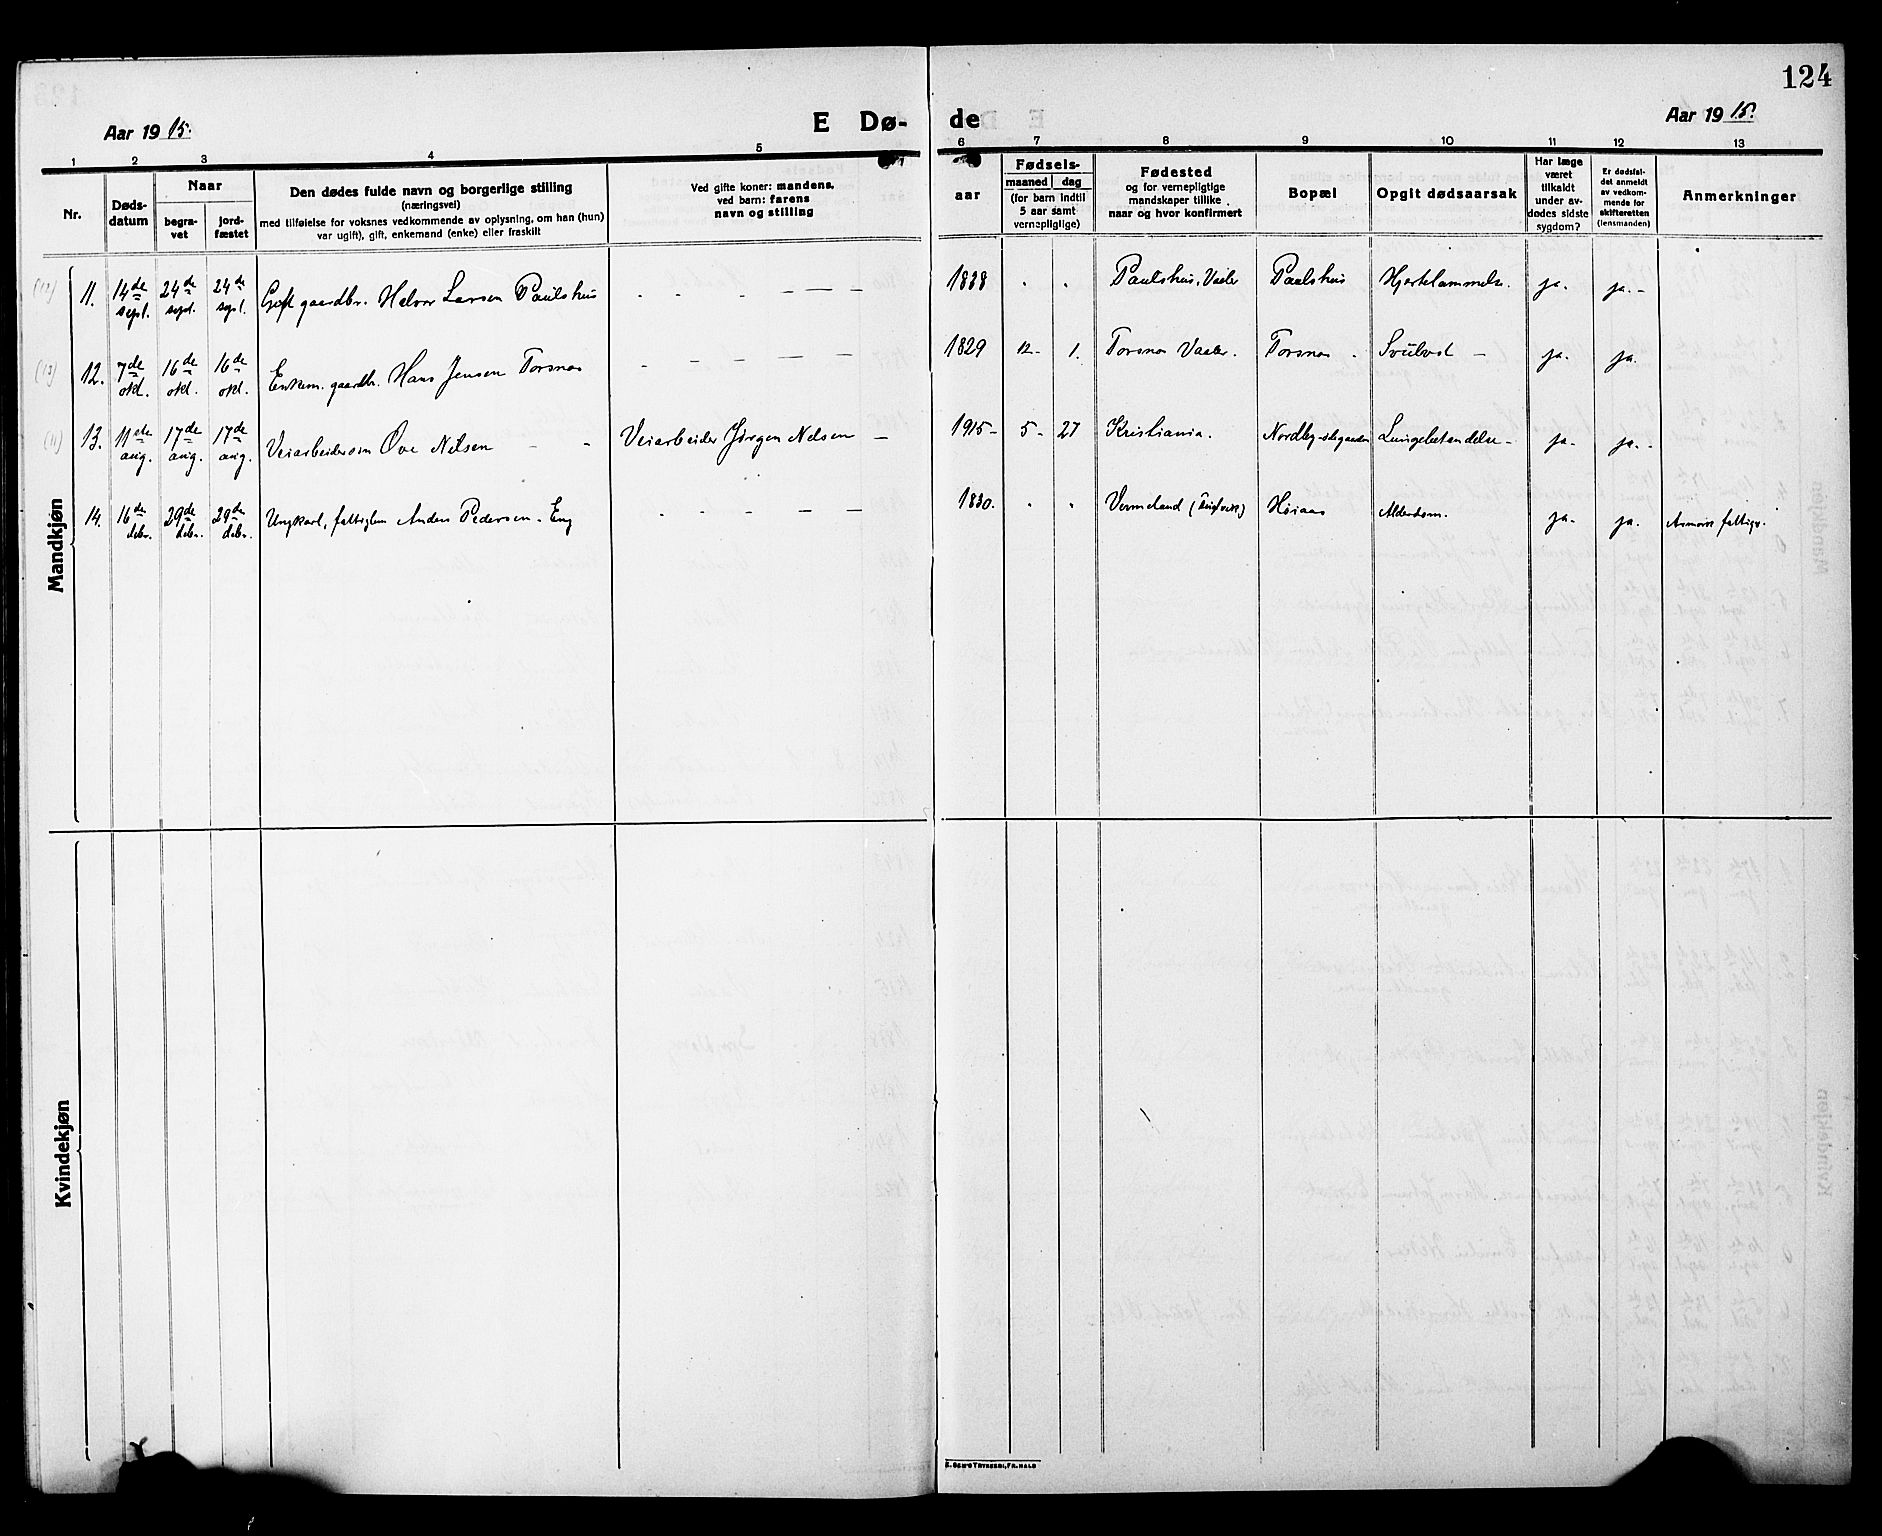 124
Aar 1915.
E Dø-
de
Aar 1915.
1 2 3 4 5 6 7 8 9 10 11 12 13
Nr.
Døds-
datum
Naar
begra-
vet
jord-
fæstet
Den dødes fulde navn og borgerlige stilling
(næringsvei)
med tilføielse for voksnes vedkommende av oplysning, om han (hun)
var ugift), gift, enkemand (enke) eller fraskilt
Ved gifte koner: mandens,
ved barn: farens
navn og stilling
Fødsels-
aar
maaned dag
(for barn indtil
5 aar samt
vernepligtige)
Fødested
og for vernepligtige
mandskaper tillike
naar og hvor konfirmert
Bopæl
Opgit dødsaarsak
Har læge
været
tilkaldt
under av-
dødes sidste
sygdom?
Er dødsfal-
det anmeldt
av vedkom-
mende for
skifteretten
(lensmanden)
Anmerkninger
Mandkjøn
(12) 11. 14de sept. 24de sept. 24de sept. Gift gaardbr. Halvor Larsen Paulshus - - - — — — 1838 " " Paulshus, Vaaler Paulshus Hjertelammelse. ja. ja. -
(13) 12. 7de okt. 16de okt. 16de okt. Enkem. gaardbr. Hans Jensen Torsnes - - — — — — 1829 12- 1. Torsnes Vaaler. Torsnes - ja. ja.
(11) 13. 11te aug. 17de aug. 17de aug. Veiarbeidersøn Ove Nilsen - - Veiarbeider Jørgen Nilsen — 1915- 5- 27 Kristiania. Lungebetændelse - ja- ja. -
14. 16de debr. 29de debr. 29de debr. Ungkarl, fattiglem Anders Pedersen - Eng - - - — — — 1830. " " Vermeland Alderdom. ja- ja.
Kvindekjøn
E. SEM'S TRYKKERI, FR.HALD